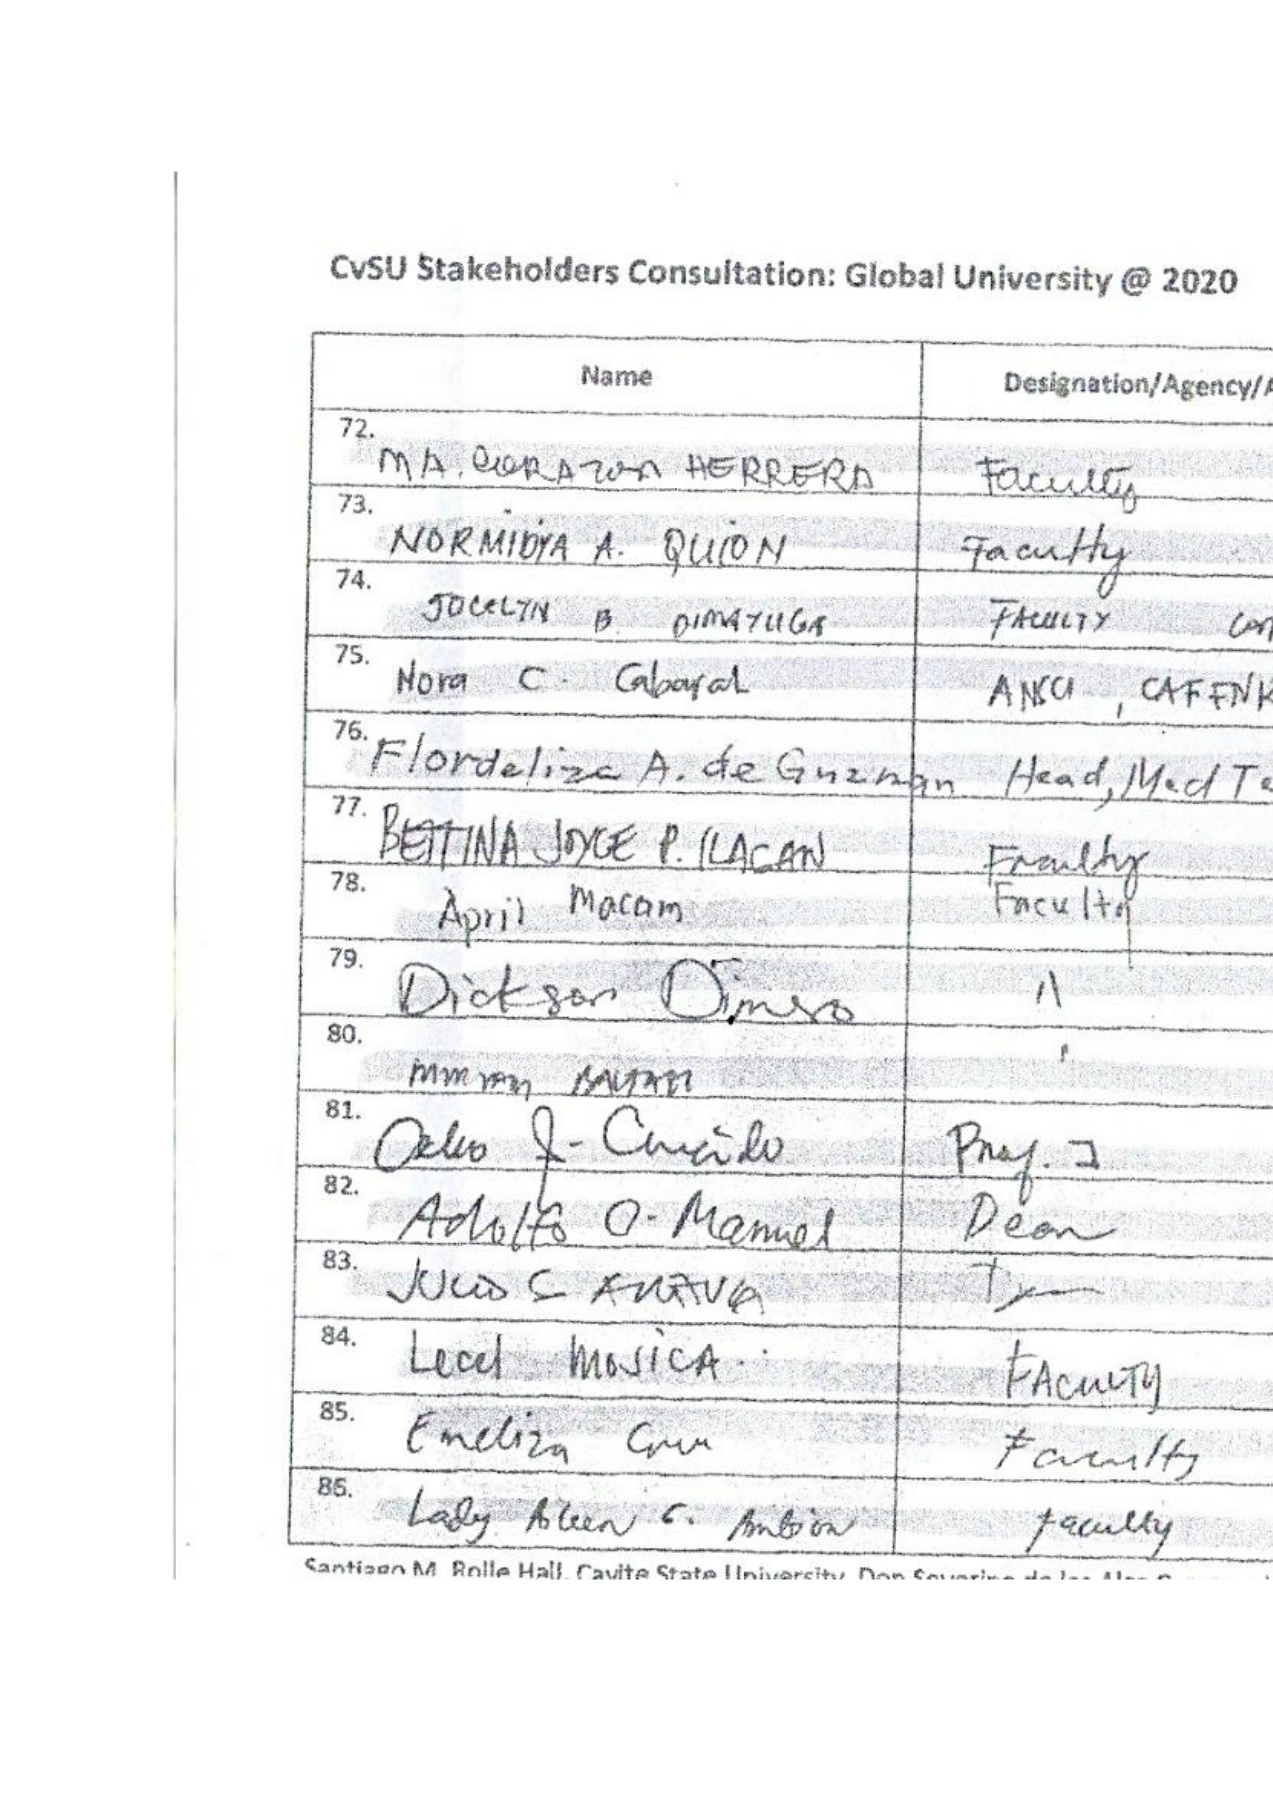 CvSU Stakeholders Consultation: Global University @ 2020
Name Designation/Agency/A
72. MA. CORAZON HERRERA Faculty
73. NORMIDYA A. QUION Faculty
74. JOCELYN B. DIMAYUGA FACULTY
75. Nora C. Cabaral ANSCI, CAFENR
76. Flordeliza A. de Guzman Head, Med Te
77. BETTINA JOYCE P. ILAGAN Faculty
78. April Macam Faculty
79. Dickson Dimero "
80.
81. Prof. I
82. Adolfo O. Manuel Dean
83.
84. MOJICA FACULTY
85. Emeliza Cruz Faculty
86. Lady Aileen C. Ambion Faculty
Santiago M. Rolle Hall, Cavite State University, Don Severino de las Alas